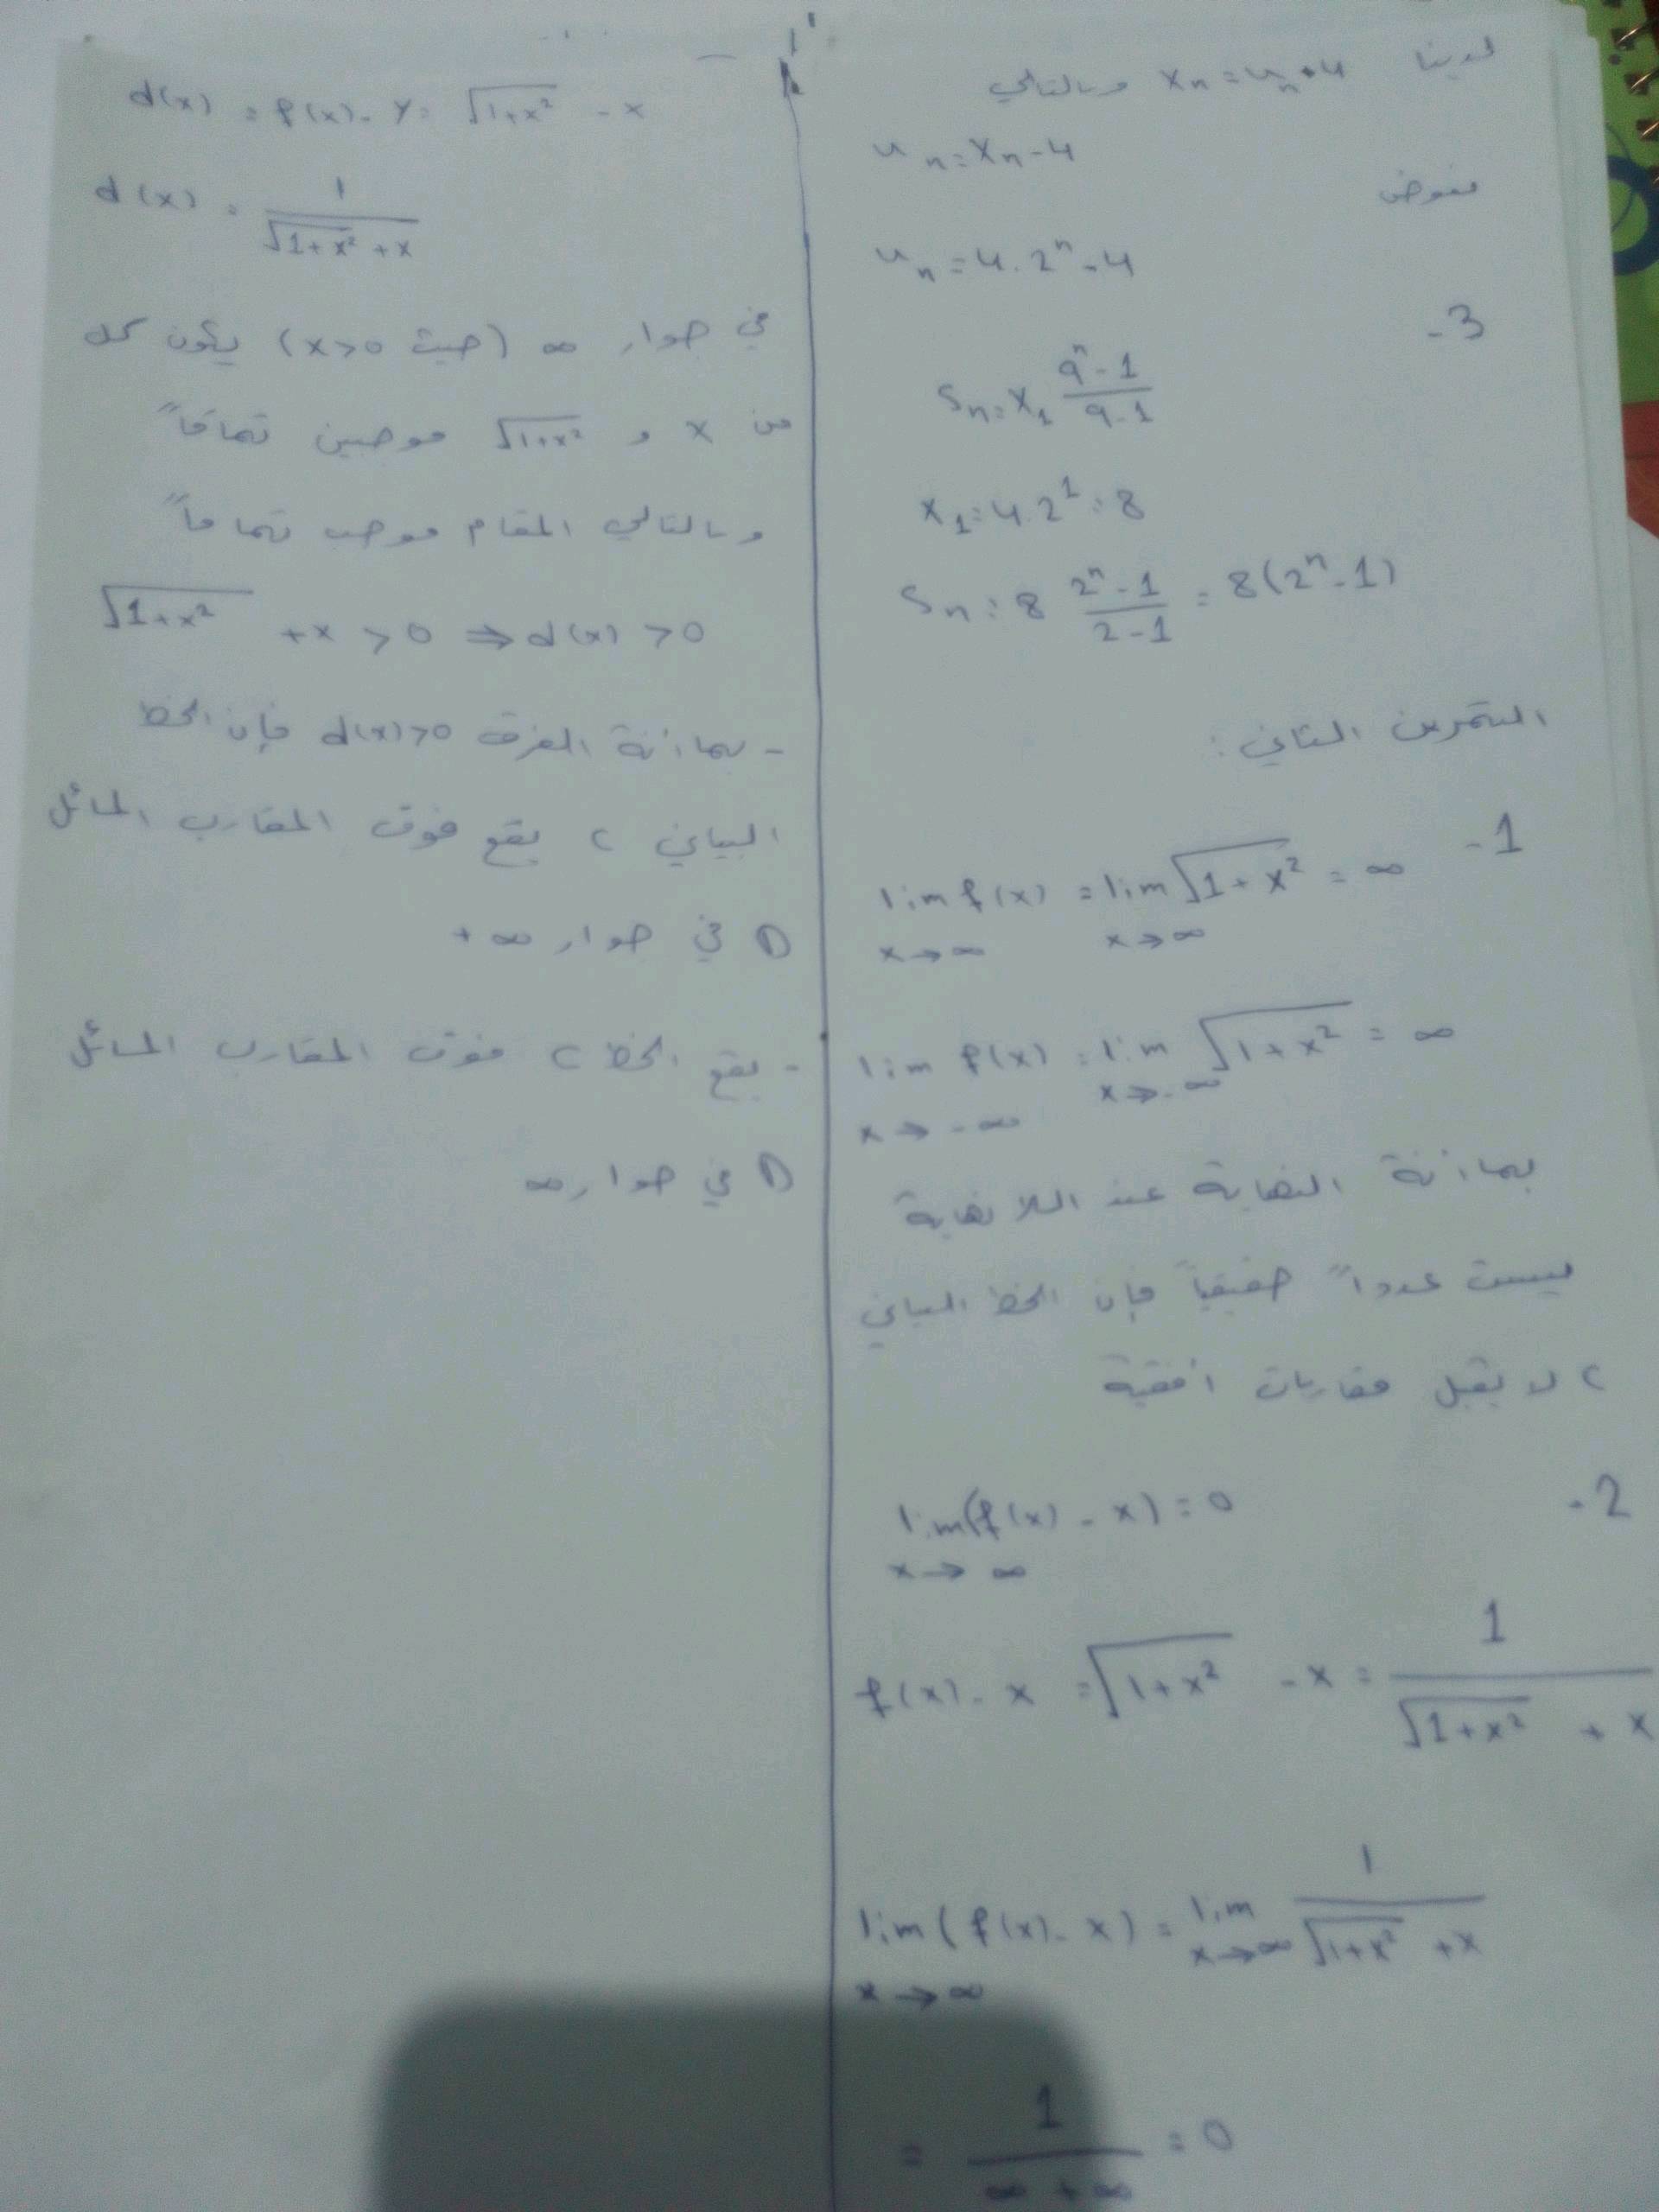 لدينا xₙ = uₙ + 4 وبالتالي
uₙ = xₙ - 4
نعوض
uₙ = 4 . 2ⁿ - 4
3 -
Sₙ = x₁ (qⁿ - 1)/(q - 1)
x₁ = 4 . 2¹ = 8
Sₙ = 8 (2ⁿ - 1)/(2 - 1) = 8(2ⁿ - 1)
التمرين الثاني :
1 -
lim f(x) = lim √(1 + x²) = ∞
x → ∞ x → ∞
lim f(x) = lim √(1 + x²) = ∞
x → -∞ x → -∞
بما أنة النهاية عند اللانهاية
ليست عدداً حقيقياً فإن الخط البياني
C لا يقبل مقاربات أفقية
2 -
lim (f(x) - x) = 0
x → ∞
f(x) - x = √(1 + x²) - x = 1/(√(1 + x²) + x)
lim (f(x) - x) = lim 1/(√(1+x²) + x)
x → ∞ x → ∞
= 1/(∞ + ∞) = 0
d(x) = f(x) - y = √(1+x²) - x
d(x) = 1/(√(1+x²) + x)
في جوار ∞ (حيث x>0) يكون كل
من x و √(1+x²) موجبين تماماً
وبالتالي المقام موجب تماماً
√(1+x²) + x > 0 ⇒ d(x) > 0
- بما أنة الفرق d(x)>0 فإن الخط
البياني C يقع فوق المقارب المائل
D في جوار +∞
- يقع الخط C فوق المقارب المائل
D في جوار ∞